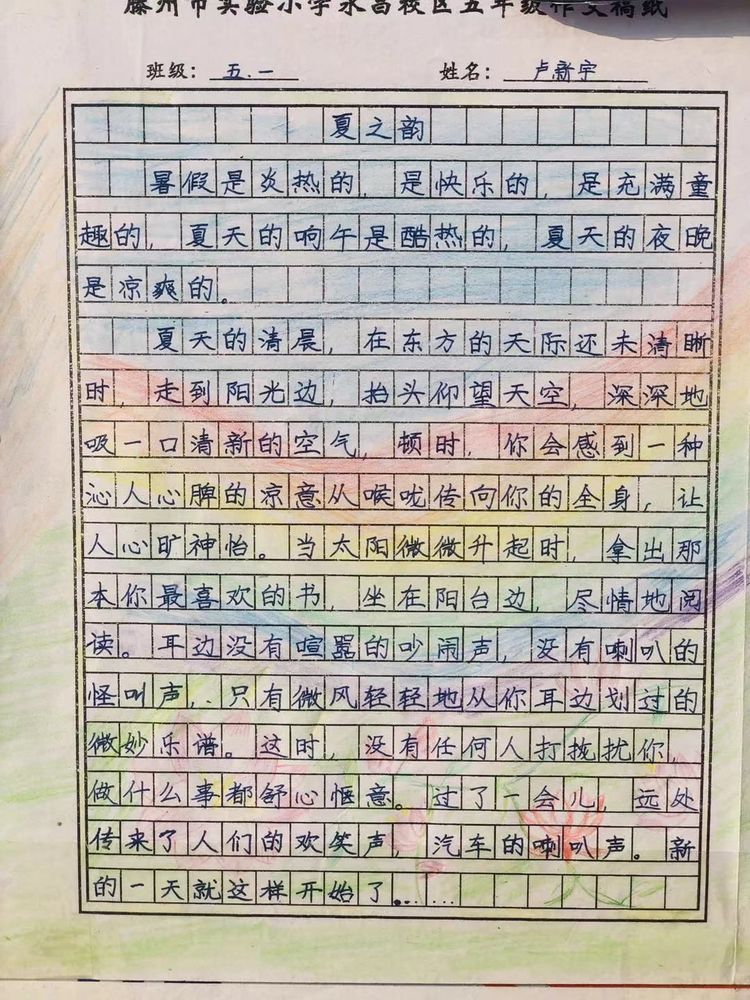 滕州市实验小学永昌校区五年级作文稿纸
班级：五.一 姓名：卢新宇
夏之韵
暑假是炎热的，是快乐的，是充满童
趣的，夏天的响午是酷热的，夏天的夜晚
是凉爽的。
夏天的清晨，在东方的天际还未清晰
时，走到阳光边，抬头仰望天空，深深地
吸一口清新的空气，顿时，你会感到一种
沁人心脾的凉意从喉咙传向你的全身，让
人心旷神怡。当太阳微微升起时，拿出那
本你最喜欢的书，坐在阳台边，尽情地阅
读。耳边没有喧嚣的吵闹声，没有喇叭的
怪叫声，只有微风轻轻地从你耳边划过的
微妙乐谱。这时，没有任何人打拢扰你，
做什么事都舒心惬意。过了一会儿，远处
传来了人们的欢笑声，汽车的喇叭声。新
的一天就这样开始了……